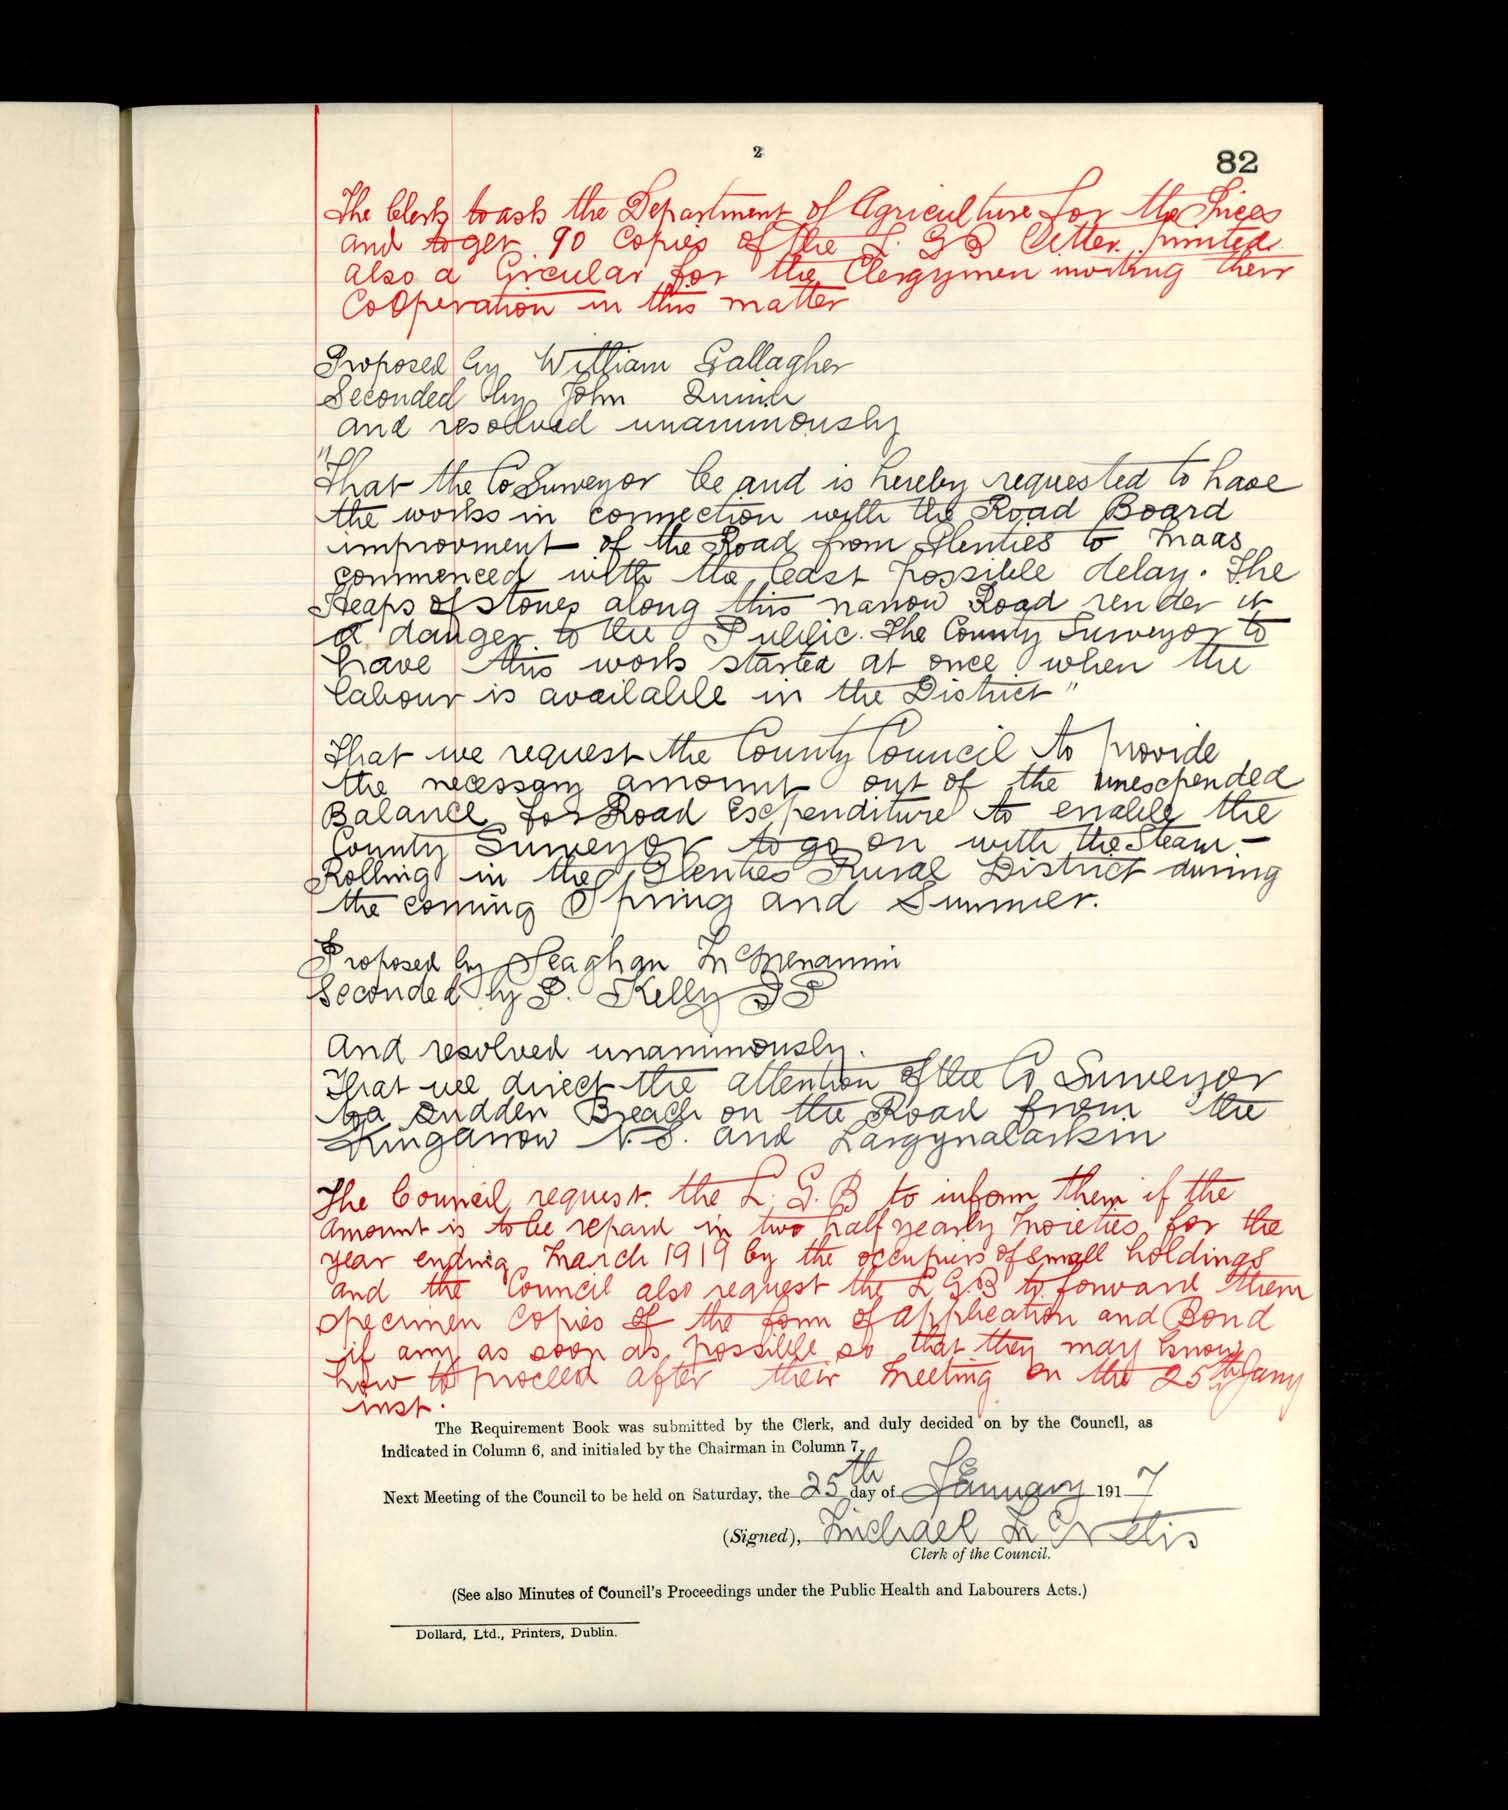 2
82
The Clerk to ask the Department of Agriculture for the Prices
and to get 90 Copies of the L. G B Letter printed
also a Circular for the Clergymen inviting their
CoOperation in this matter
Proposed by William Gallagher
Seconded by John Quinn
and resolved unanimously
"That the Co Surveyor be and is hereby requested to have
the works in connection with the Road Board
improvment of the Road from Glenties to Maas
commenced with the least possible delay. The
Heaps of stones along this narrow Road render it
a danger to the Public. The County Surveyor to
have this work started at once when the
labour is available in the District"
That we request the County Council to provide
the necessary amount out of the unexpended
Balance for Road Expenditure to enable the
County Surveyor to go on with the Steam-
Rolling in the Glenties Rural District during
the coming Spring and Summer.
Proposed by Seaghan McMenamin
Seconded by P. Kelly JP
and resolved unanimously.
That we direct the attention of the Co Surveyor
to a Sudden Breach on the Road from the
Kingarrow N.S. and Largynalarkin
The Council request the L. G. B to inform them if the
amount is to be repaid in two half yearly Moieties for the
year ending March 1919 by the occupiers of small holdings
and the Council also request the L G.B to forward them
specimen Copies of the form of application and Bond
if any as soon as possible so that they may know
how to proceed after their Meeting on the 25th Jany
inst.
The Requirement Book was submitted by the Clerk, and duly decided on by the Council, as
indicated in Column 6, and initialed by the Chairman in Column 7.
Next Meeting of the Council to be held on Saturday, the 25th day of January 1917
(Signed), Michael McNelis
Clerk of the Council.
(See also Minutes of Council's Proceedings under the Public Health and Labourers Acts.)
Dollard, Ltd., Printers, Dublin.